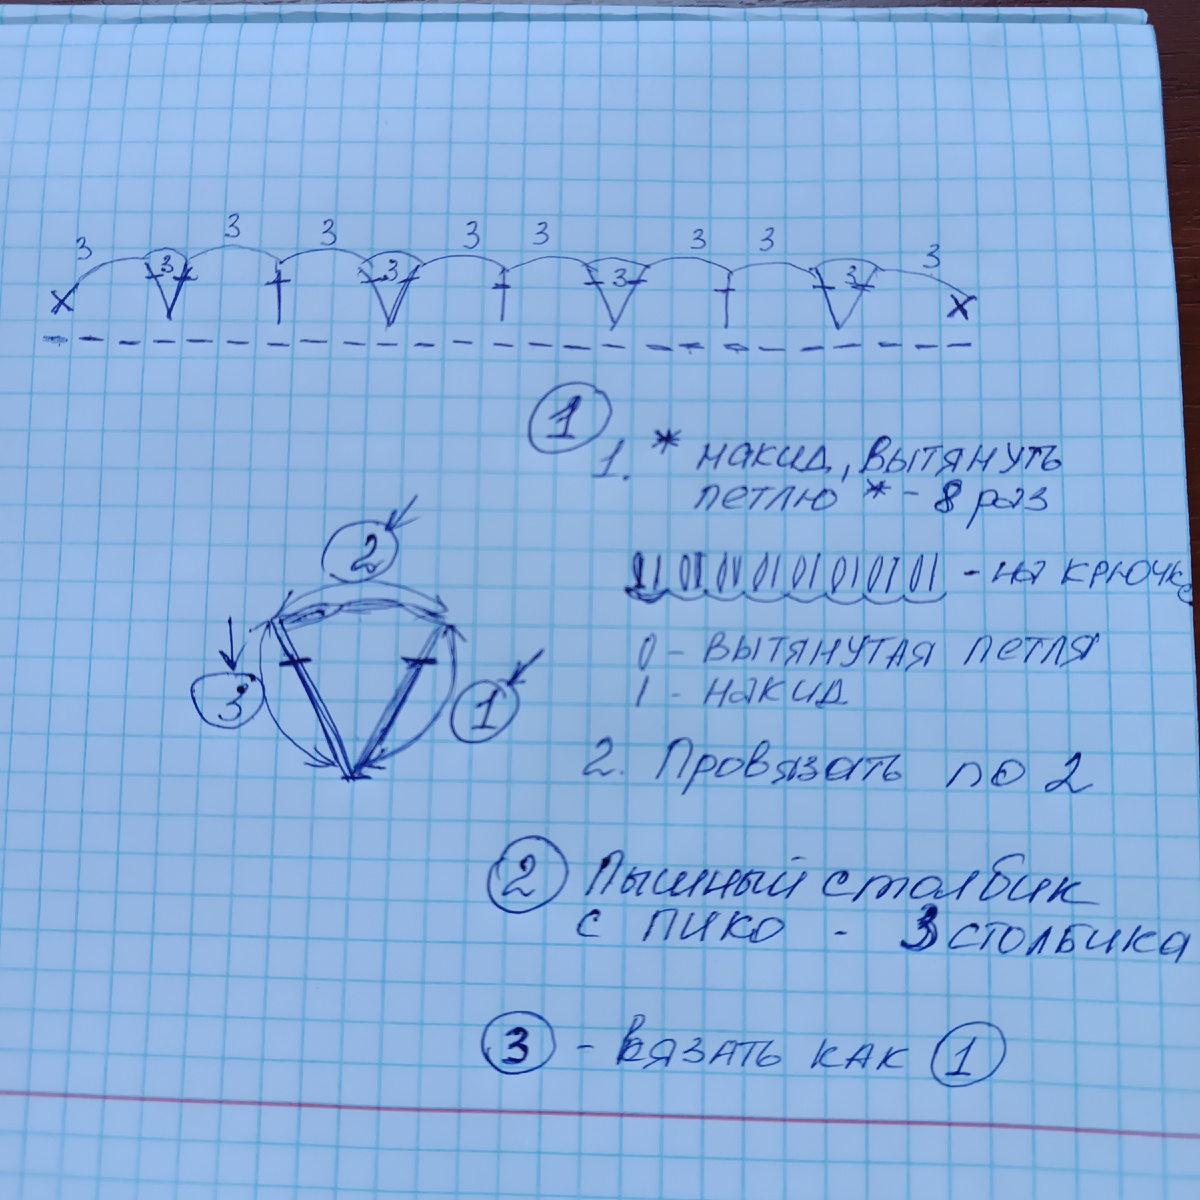 3 3 3 3 3 3 3 3
3 3 3 3
1
1. * накид, вытянуть
петлю * - 8 раз
01 01 01 01 01 01 01 - на крючке
0 - вытянутая петля
1 - накид
2
3
1
2. Провязать по 2
2 Пышный столбик
с пико - 3 столбика
3 - Вязать как 1